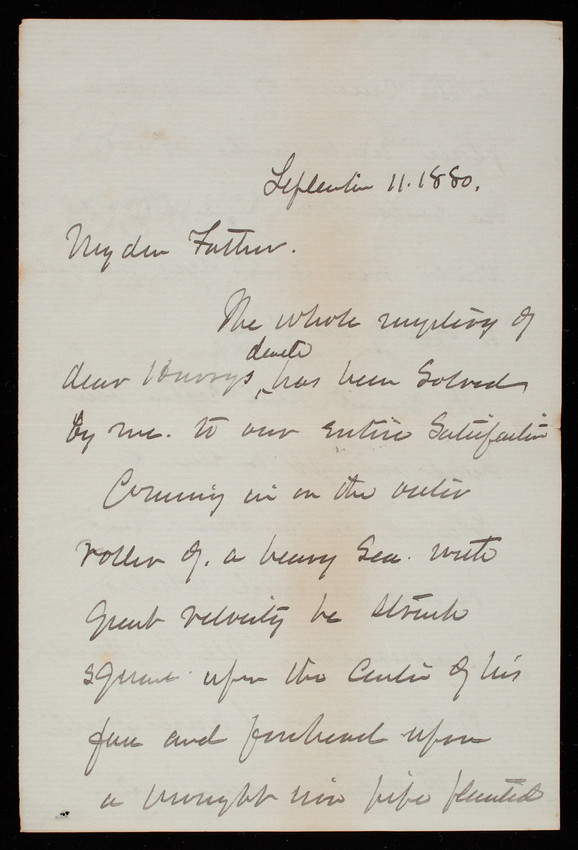 September 11. 1880.
My dear Father.
The whole mystery of
death
dear Harrys, has been Solved
by me. to our entire Satisfaction
Comming in on the outer
roller of. a heavy Sea. with
great velocity he struck
square upon the Center of his
face and forehead upon
a wrought iron pipe planted